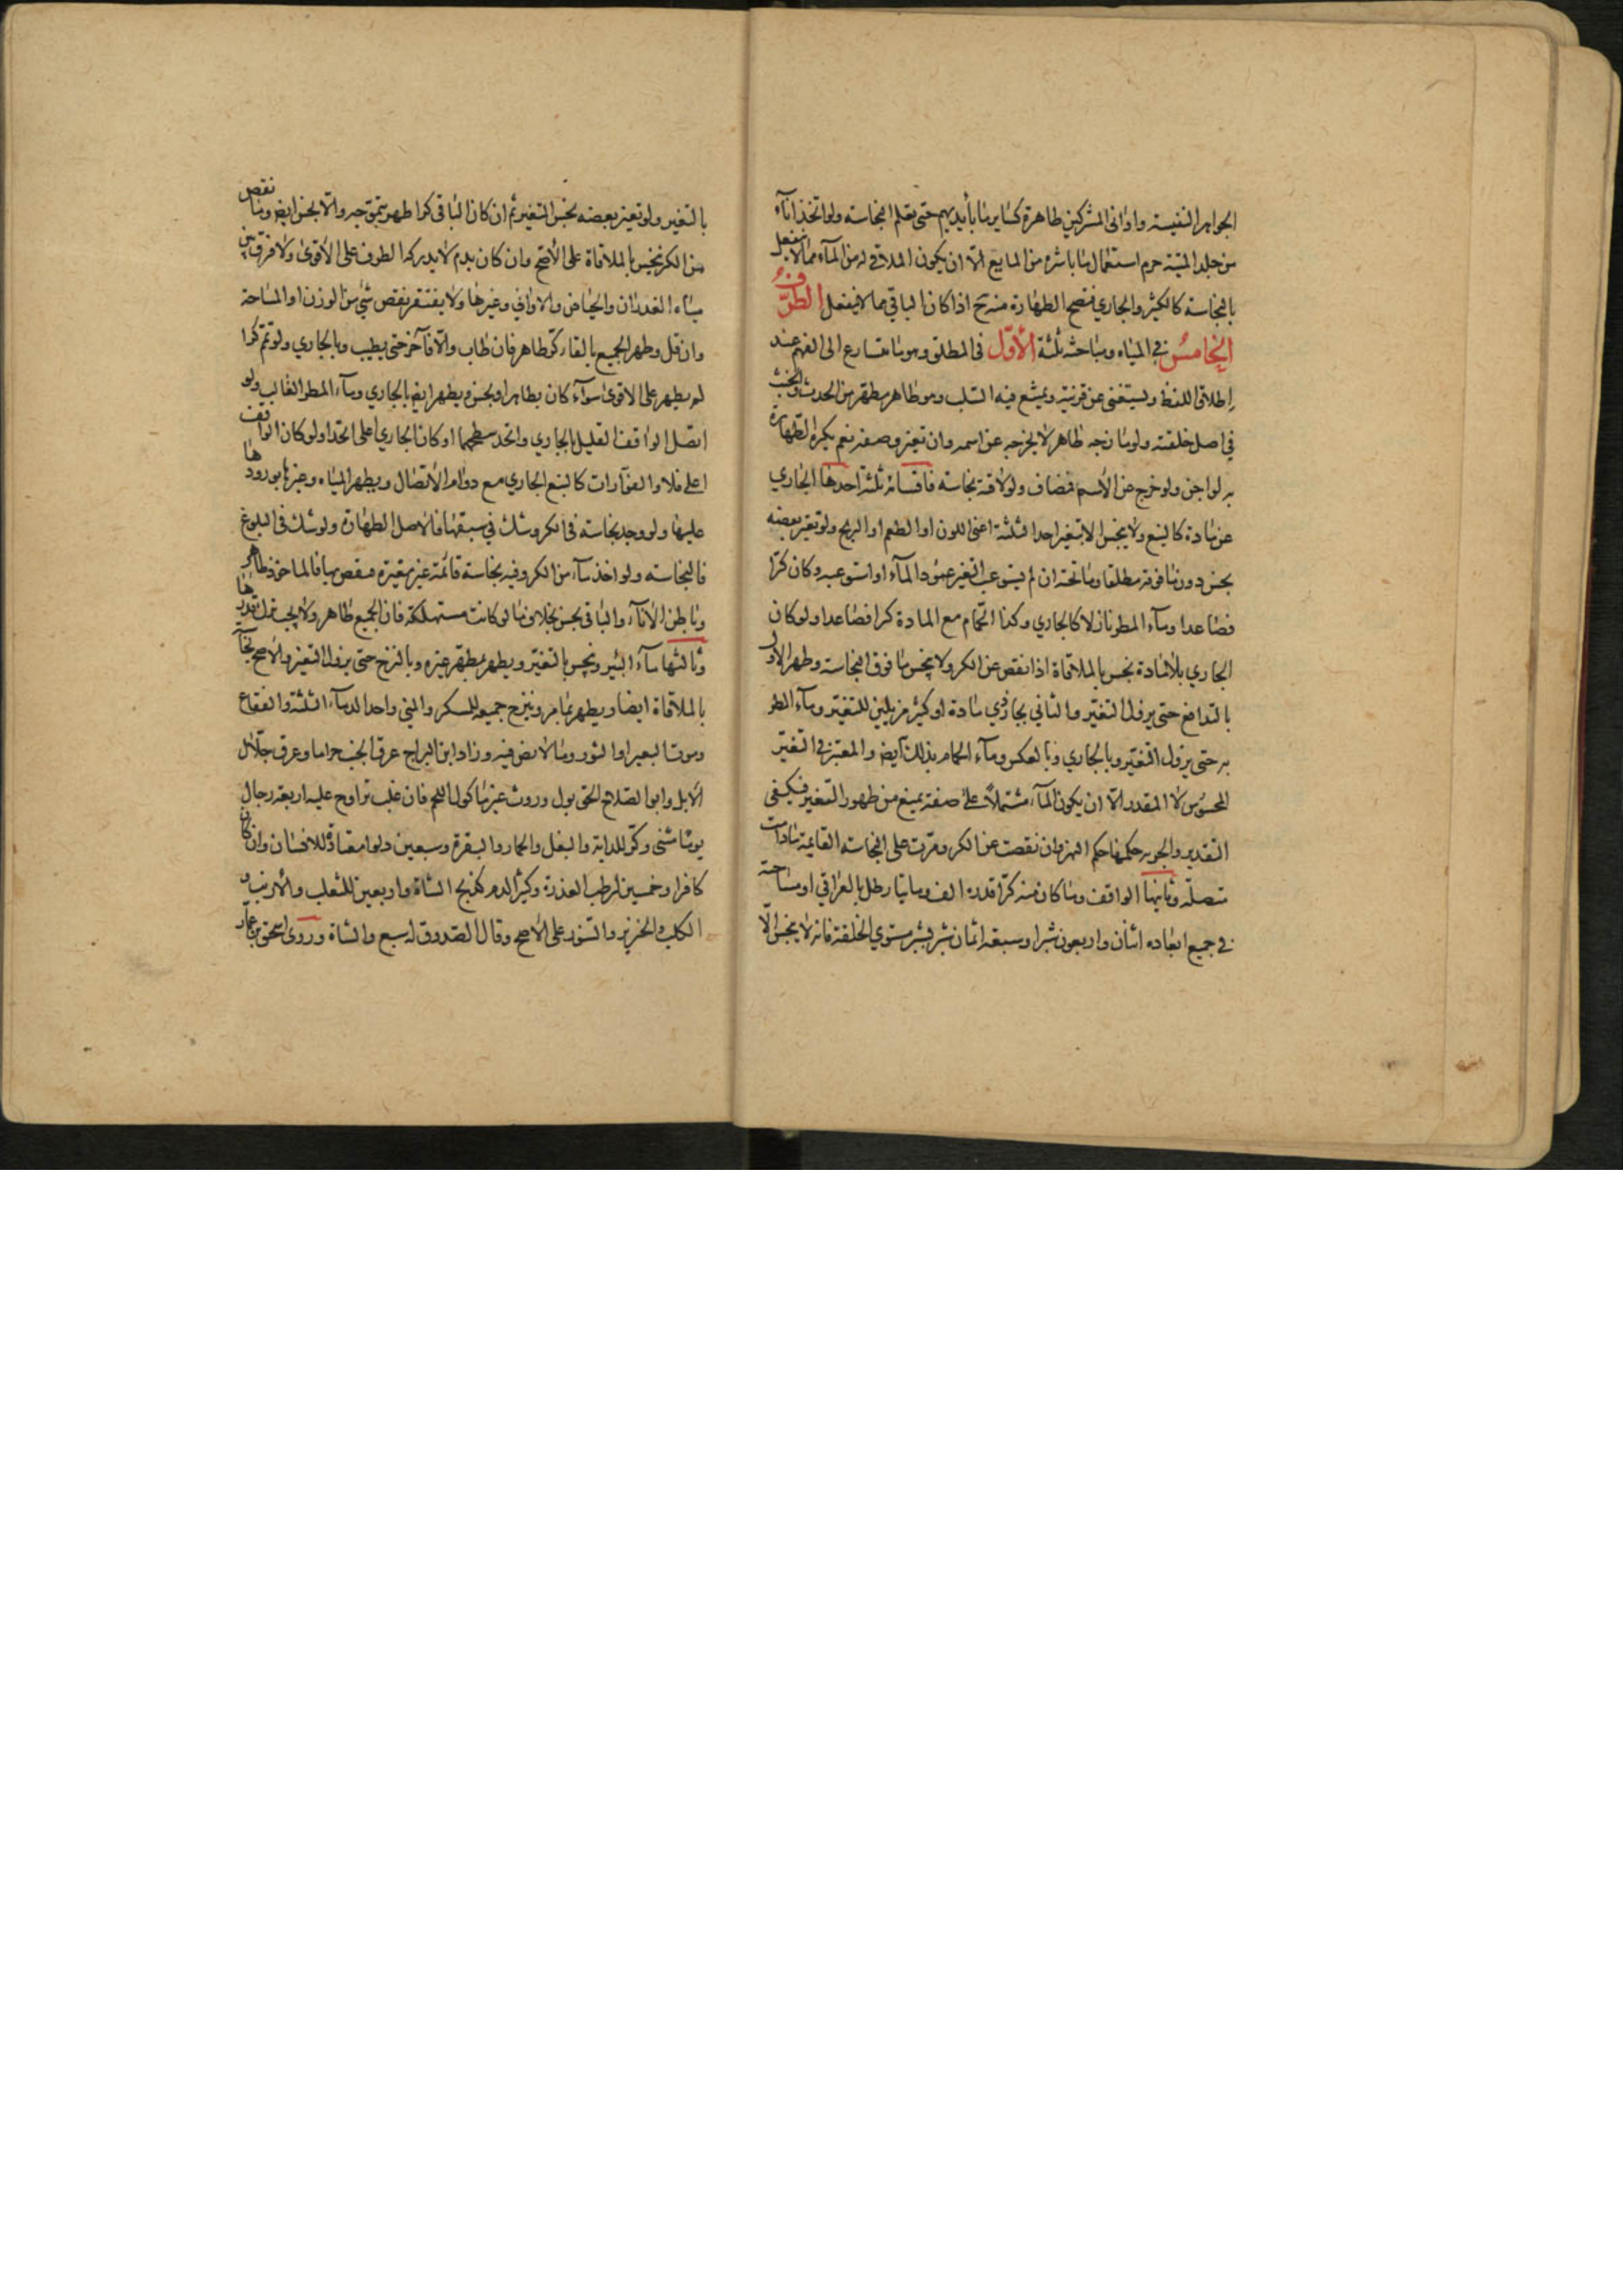 الجواهر النفيسة واوانى المشركين طاهرة كسا ير ما بأيديهم حتى يعلم النجاسة ولو اتخذ اناء
من جلد الميتة حرم استعمال ما باشره من المايع الا ان يكون الملاقي له من الماء مما لا ينفعل
بالنجاسة كالكثير والجاري فتصح الطهارة منه ح اذا كان الباقي مما لا ينفعل الطرف
الخامس في المياه ومباحثه ثلثة الأول فى المطلق وهو ما يتسارع الى الفهم عند
إطلاق اللفظ ويستغنى عن قرنية ويمتنع فيه السلب وهو طاهر مطهر من الحدث والخبث
في اصل خلقته ولو مازجه طاهر لا يخرجه عن اسمه وان تغير وصفه نعم يكره الطهارة
به لو اجن ولو خرج عن الاسم فمضاف ولو لاقته نجاسة فاقسامه ثلثة احدها الجاري
عن مادة كالنبع ولا ينجس الا بتغير احد الثلثة اعنى اللون او الطعم او الريح ولو تغير بعضه
نجس دون ما فوقه مطلقا وما تحته ان لم يستوعب التغير عمود الماء او استوعبه وكان كرا
فصاعدا وماء المطر نازلا كالجاري وكذا الحمام مع المادة كرا فصاعدا ولو كان
الجاري بلا مادة نجس بالملاقاة اذا نقص عن الكر ولا ينجس ما فوق النجاسة وطهر الاول
بالتدافع حتى يزول التغير والثاني بجار ذي مادة او كثير مزيلين للتغير وماء المطر
به حتى يزول التغير وبالجاري وبالعكس وماء الحمام بذلك ايض والمعتبر في التغير
المحسوس لا المقدر الا ان يكون الماء مشتملاً على صفة يمنع من ظهور التغير فيكفى
التقدير والجريه حكمها حكم النهر وان نقصت عن الكر ومرت على النجاسة القايمة مادامت
متصلة وثانيها الواقف وما كان منه كرا قدره الف ومايتا رطل بالعراقي او مساحة
في جميع ابعاده اثنان واربعون شبرا وسبعة اثمان شبر بشبر مستوي الخلقة فانه لا ينجس الا
بالتغير ولو تغير بعضه نجس المتغير ثم ان كان الباقى كرا طهر بتموجه والا نجس ايض وما نقص
من الكر نجس بالملاقاة على الأصح وان كان بدم لا يدركه الطرف على الاقوى ولا فرق بين
مياه الغدران والحياض والاواني وغيرها ولا يفتقر نقص شئ من الوزن او المساحة
وان قل وطهر الجميع بالقاء كر طاهر فان طاب والا فآخر حتى يطيب وبالجاري ولو تمم كرا
لم يطهر على الاقوى سواء كان بطاهر او بنجس ويطهر ايض بالجاري وماء المطر الغالب ولو
اتصل الواقف القليل بالجاري واتحد سطحهما او كان الجاري اعلى اتحدا ولو كان الواقف
اعلى فلا والفوارات كالنبع الجاري مع دوام الاتصال ويطهر المياه وغيرها بورودها
عليها ولو وجد نجاسة فى الكر وشك في سبقها فالاصل الطهارة ولو شك فى البلوغ
فالنجاسة ولو اخذ ماء من الكر وفيه نجاسة قائمة غير مغيرة فنقص بها فالماخوذ طاهر
وباطن الاناء والباقى نجس بخلاف ما لو كانت مستهلكة فان الجميع طاهر ولا يجب ترك قدرها
وثالثها ماء البئر وينجس بالتغير ويطهر بمطهر غيره وبالنزح حتى يزول التغير والاصح نجاسته
بالملاقاة ايضا ويطهر بما مر وبنزح جميعه للمسكر والمنى واحد الدماء الثلثة والفقاع
وموت البعير او الثور وما لا نص فيه وزاد ابن البراج عرق الجنب حراما وعرق جلال
الابل وابو الصلاح الحق بول وروث غير ماكول اللحم فان غلب تراوح عليه اربعة رجال
يوما مثنى وكر للدابة والبغل والحمار والبقرة وسبعين دلوا معتادة للانسان وان كان
كافرا وخمسين لرطب العذرة وكثير الدم كذبح الشاة واربعين للثعلب والأرنب و
الكلب والخنزير والسنور على الاصح وقال الصدوق له سبع والشاة وروى اسحق بن عمار